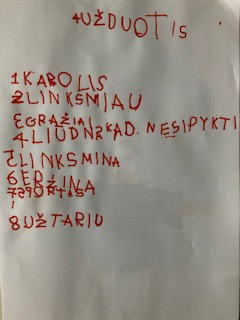 4UŽDUOTIS
1KAROLIS
2LINKSMIAU
EGRAŽIAI
4LIŪDNRKAD. NESIPYKTI
LINKSMINA
6ERZINA
8UŽTARIU